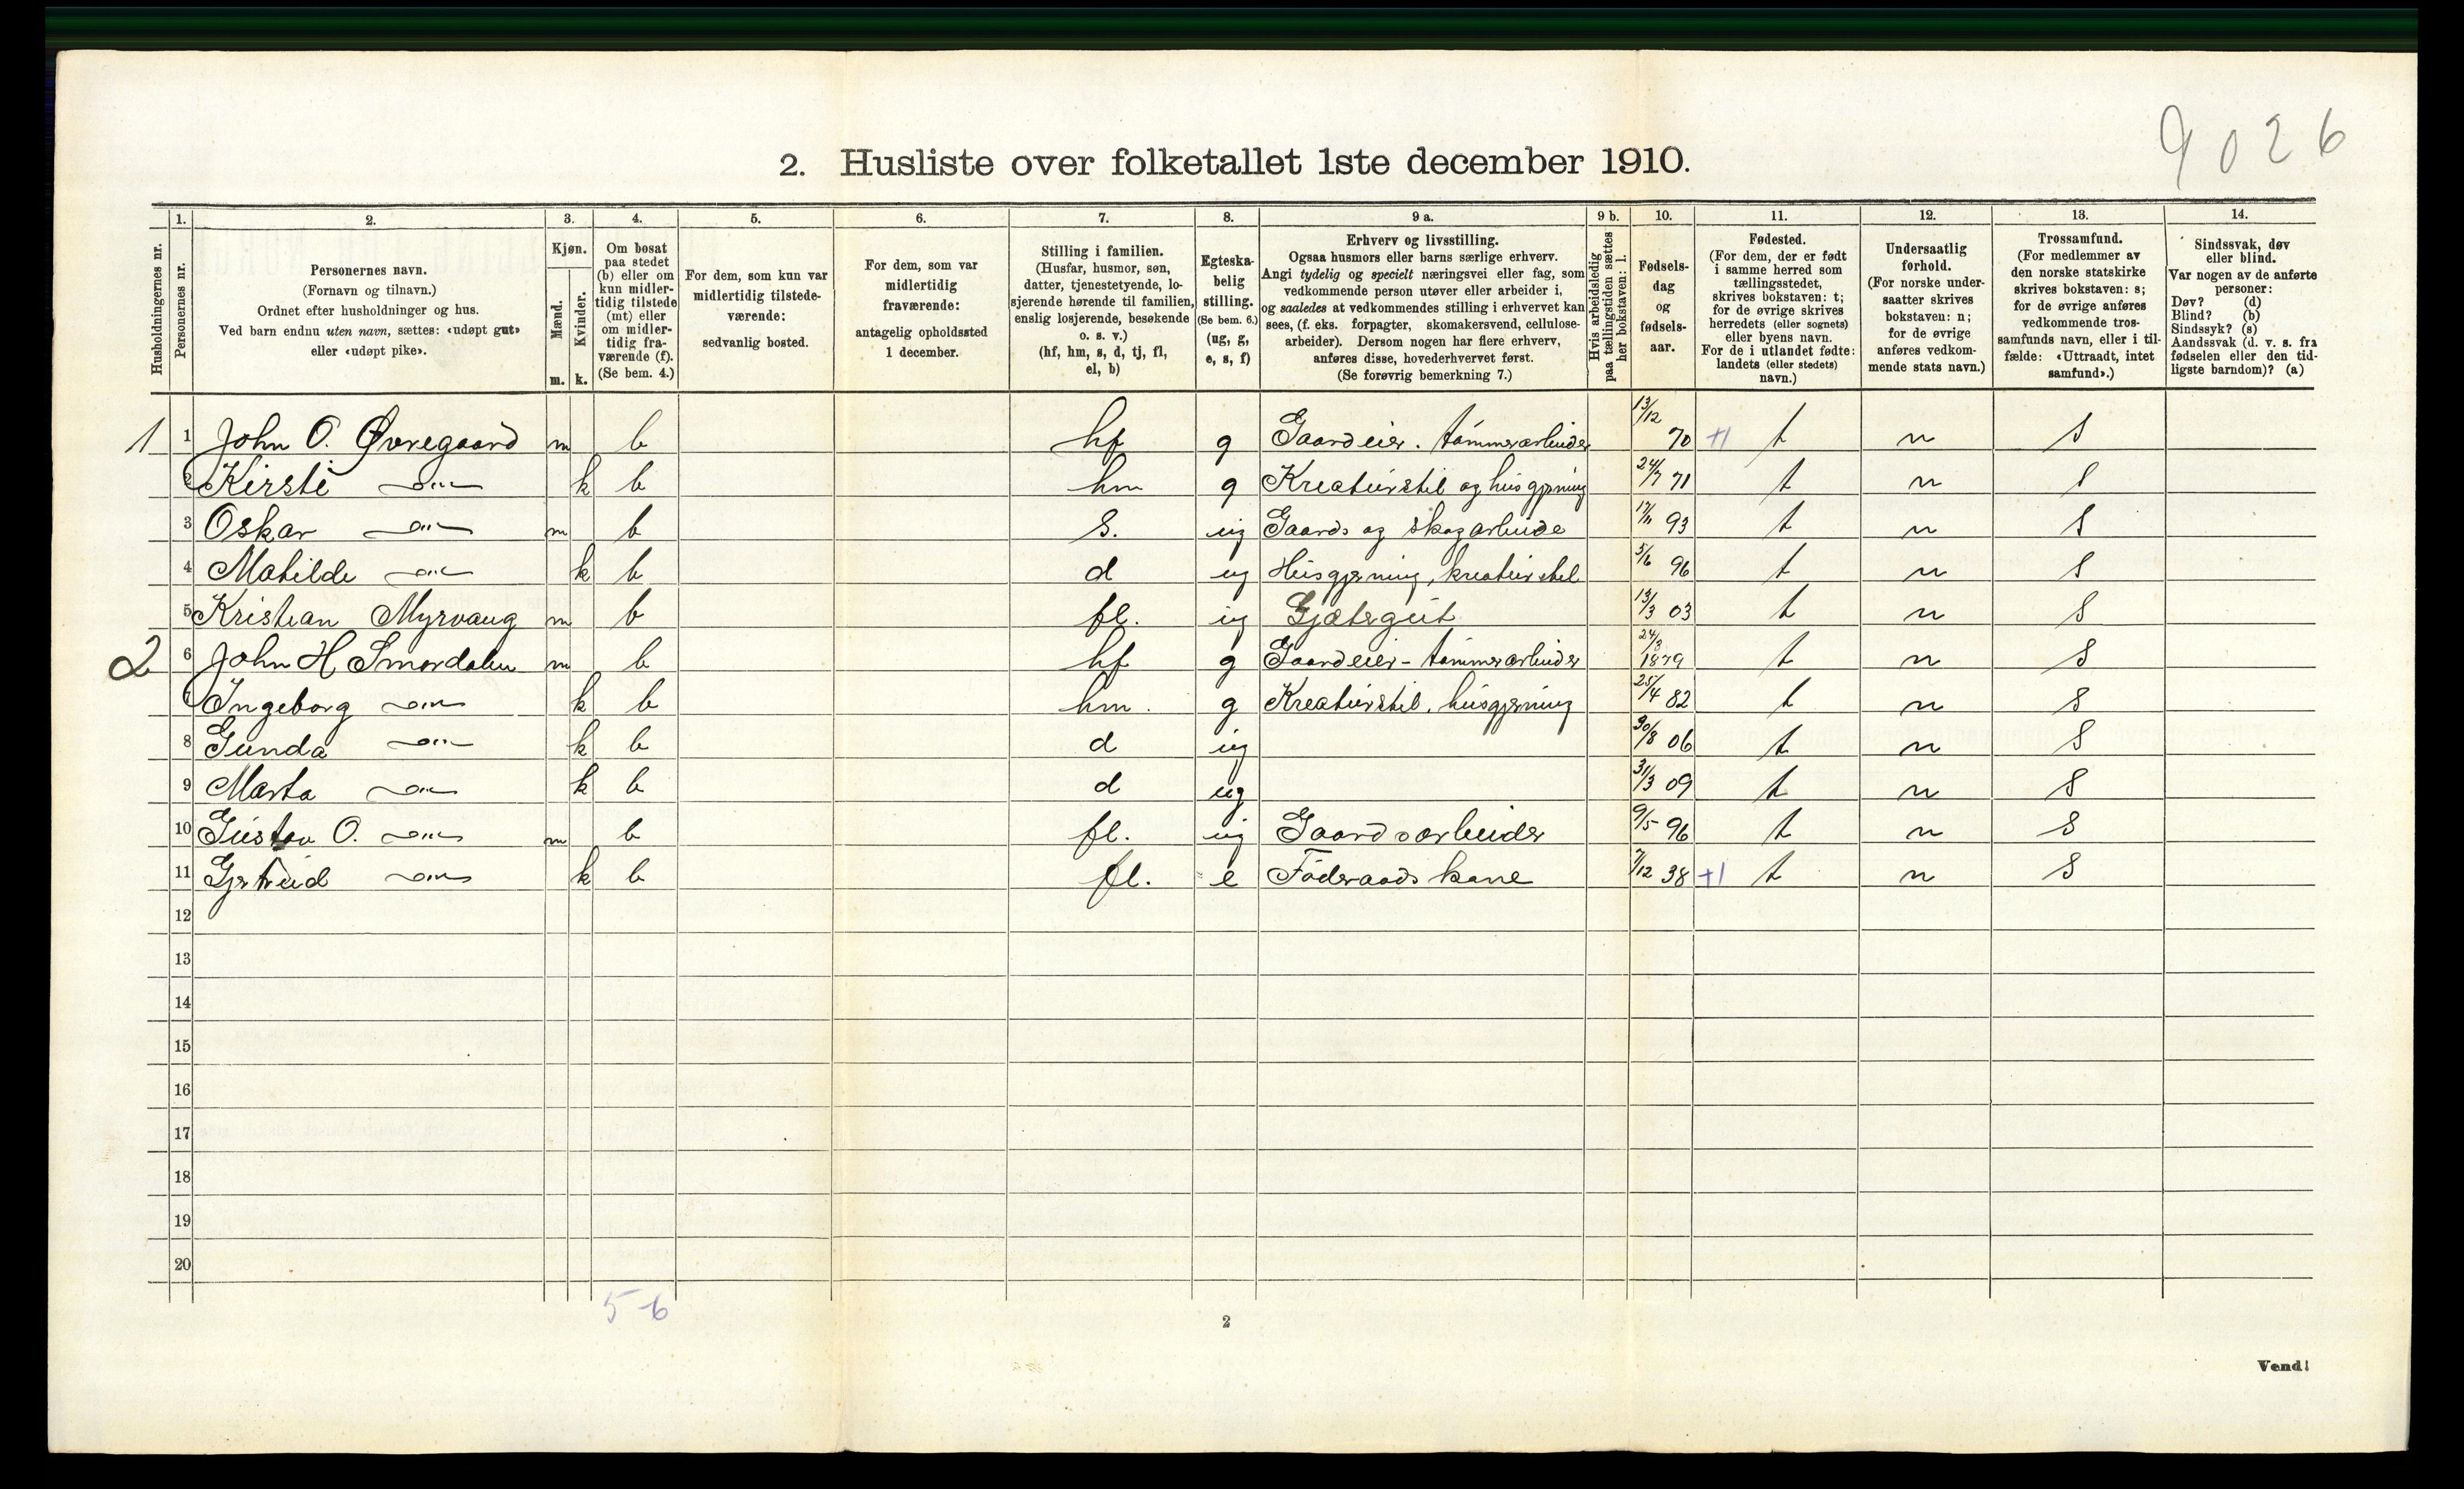 9026
2. Husliste over folketallet 1ste december 1910.
1. 2. 3. 4. 5. 6. 7. 8. 9 a. 9 b. 10. 11. 12. 13. 14.
Husholdningernes nr.
Personernes nr.
Personernes navn.
(Fornavn og tilnavn.)
Ordnet efter husholdninger og hus.
Ved barn endnu uten navn, sættes: «udøpt gut»
eller «udøpt pike».
Kjøn.
Mænd.
Kvinder.
m. k.
Om bosat
paa stedet
(b) eller om
kun midler-
tidig tilstede
(mt) eller
om midler-
tidig fra-
værende (f).
(Se bem. 4.)
For dem, som kun var
midlertidig tilstede-
værende:
sedvanlig bosted.
For dem, som var
midlertidig
fraværende:
antagelig opholdssted
1 december.
Stilling i familien.
(Husfar, husmor, søn,
datter, tjenestetyende, lo-
sjerende hørende til familien,
enslig losjerende, besøkende
o. s. v.)
(hf, hm, s, d, tj, fl,
el, b)
Egteska-
belig
stilling.
(Se bem. 6.)
(ug, g,
e, s, f)
Erhverv og livsstilling.
Ogsaa husmors eller barns særlige erhverv.
Angi tydelig og specielt næringsvei eller fag, som
vedkommende person utøver eller arbeider i,
og saaledes at vedkommendes stilling i erhvervet kan
sees, (f. eks. forpagter, skomakersvend, cellulose-
arbeider). Dersom nogen har flere erhverv,
anføres disse, hovederhvervet først.
(Se forøvrig bemerkning 7.)
Hvis arbeidsledig
paa tællingstiden sættes
her bokstaven: l.
Fødsels-
dag
og
fødsels-
aar.
Fødested.
(For dem, der er født
i samme herred som
tællingsstedet,
skrives bokstaven: t;
for de øvrige skrives
herredets (eller sognets)
eller byens navn.
For de i utlandet fødte:
landets (eller stedets)
navn.)
Undersaatlig
forhold.
(For norske under-
saatter skrives
bokstaven: n;
for de øvrige
anføres vedkom-
mende stats navn.)
Trossamfund.
(For medlemmer av
den norske statskirke
skrives bokstaven: s;
for de øvrige anføres
vedkommende tros-
samfunds navn, eller i til-
fælde: «Uttraadt, intet
samfund».)
Sindssvak, døv
eller blind.
Var nogen av de anførte
personer:
Døv? (d)
Blind? (b)
Sindssyk? (s)
Aandssvak (d. v. s. fra
fødselen eller den tid-
ligste barndom)? (a)
1 1 John O. Øvregaard m b hf g Gaardeier. tømmerarbeider 13/12 70 +1 t n s
2 Kirsti —"— k b hm g Kreaturstel og husgjerning 24/7 71 t n s
3 Oskar —"— m b s. ug Gaards og skogarbeide 17/11 93 t n s
4 Matilde —"— k b d ug Husgjerning, kreaturstel 5/6 96 t n s
5 Kristian Myrvang m b fl. ug Gjætergut 13/3 03 t n s
2 6 John H Smørdalen m b hf g Gaardeier - tømmerarbeider 24/3 1879 t n s
7 Ingeborg —"— k b hm. g Kreaturstel, husgjerning 25/4 82 t n s
8 Gunda —"— k b d ug 30/8 06 t n s
9 Marta —"— k b d ug 31/3 09 t n s
10 Gustav O. —"— m b fl. ug Gaardsarbeider 9/5 96 t n s
11 Gjertrud —"— k b fl. e Føderaadskone 7/12 38 +1 t n s
12
13
14
15
16
17
18
19
20
5-6
2
Vend!